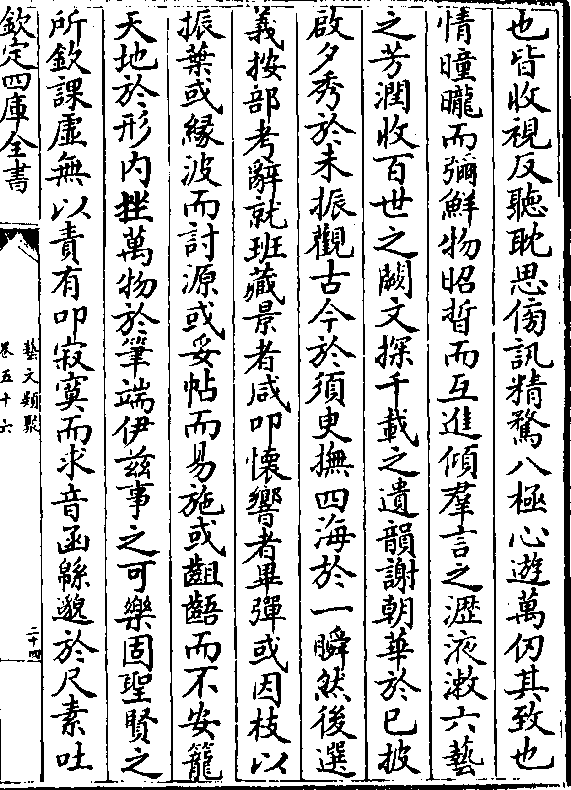 也皆收視反聽耽思傍訊精騖八極心遊萬仞其致也
情曈曨而彌鮮物昭晢而互進傾羣言之瀝液漱六藝
之芳潤收百世之闕文探千載之遺韻謝朝華於已披
啟夕秀於未振觀古今於須臾撫四海於一瞬然後選
義按部考辭就班藏景者咸叩懷響者畢彈或因枝以
振葉或緣波而討源或妥帖而易施或齟齬而不安籠
天地於形內挫萬物於筆端伊兹事之可樂固聖賢之
所欽課虛無以責有叩寂寞而求音函緜邈於尺素吐
欽定四庫全書
藝文類聚
卷五十六
二十四